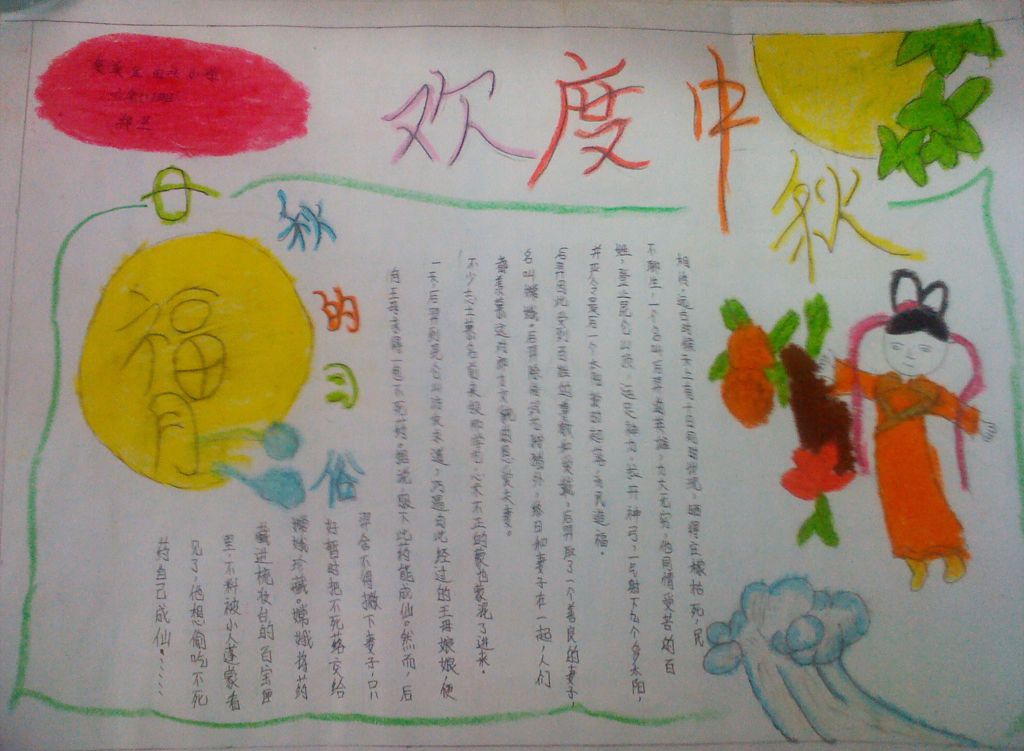 欢度中秋
中秋的习俗
福
月
相传，远古时候天上有十日同时出现，晒得庄稼枯死，民
不聊生，一个名叫后羿的英雄，力大无穷，他同情受苦的百
姓，登上昆仑山顶，运足神力，拉开神弓，一气射下九个多太阳，
并严令最后一个太阳按时起落，为民造福。
后羿因此受到百姓的尊敬和爱戴，后羿娶了一个善良的妻子，
名叫嫦娥。后羿除传艺狩猎外，终日和妻子在一起，人们
都羡慕这对郎才女貌的恩爱夫妻。
不少志士慕名前来投师学艺，心术不正的蓬蒙也混了进来。
一天后羿到昆仑山访友求道，巧遇由此经过的王母娘娘，便
向王母求得一包不死药。据说，服下此药能成仙。然而，后
羿舍不得撇下妻子，只
好暂时把不死药交给
嫦娥珍藏。嫦娥将药
藏进梳妆台的百宝匣
里，不料被小人蓬蒙看
见了，他想偷吃不死
药自己成仙。……